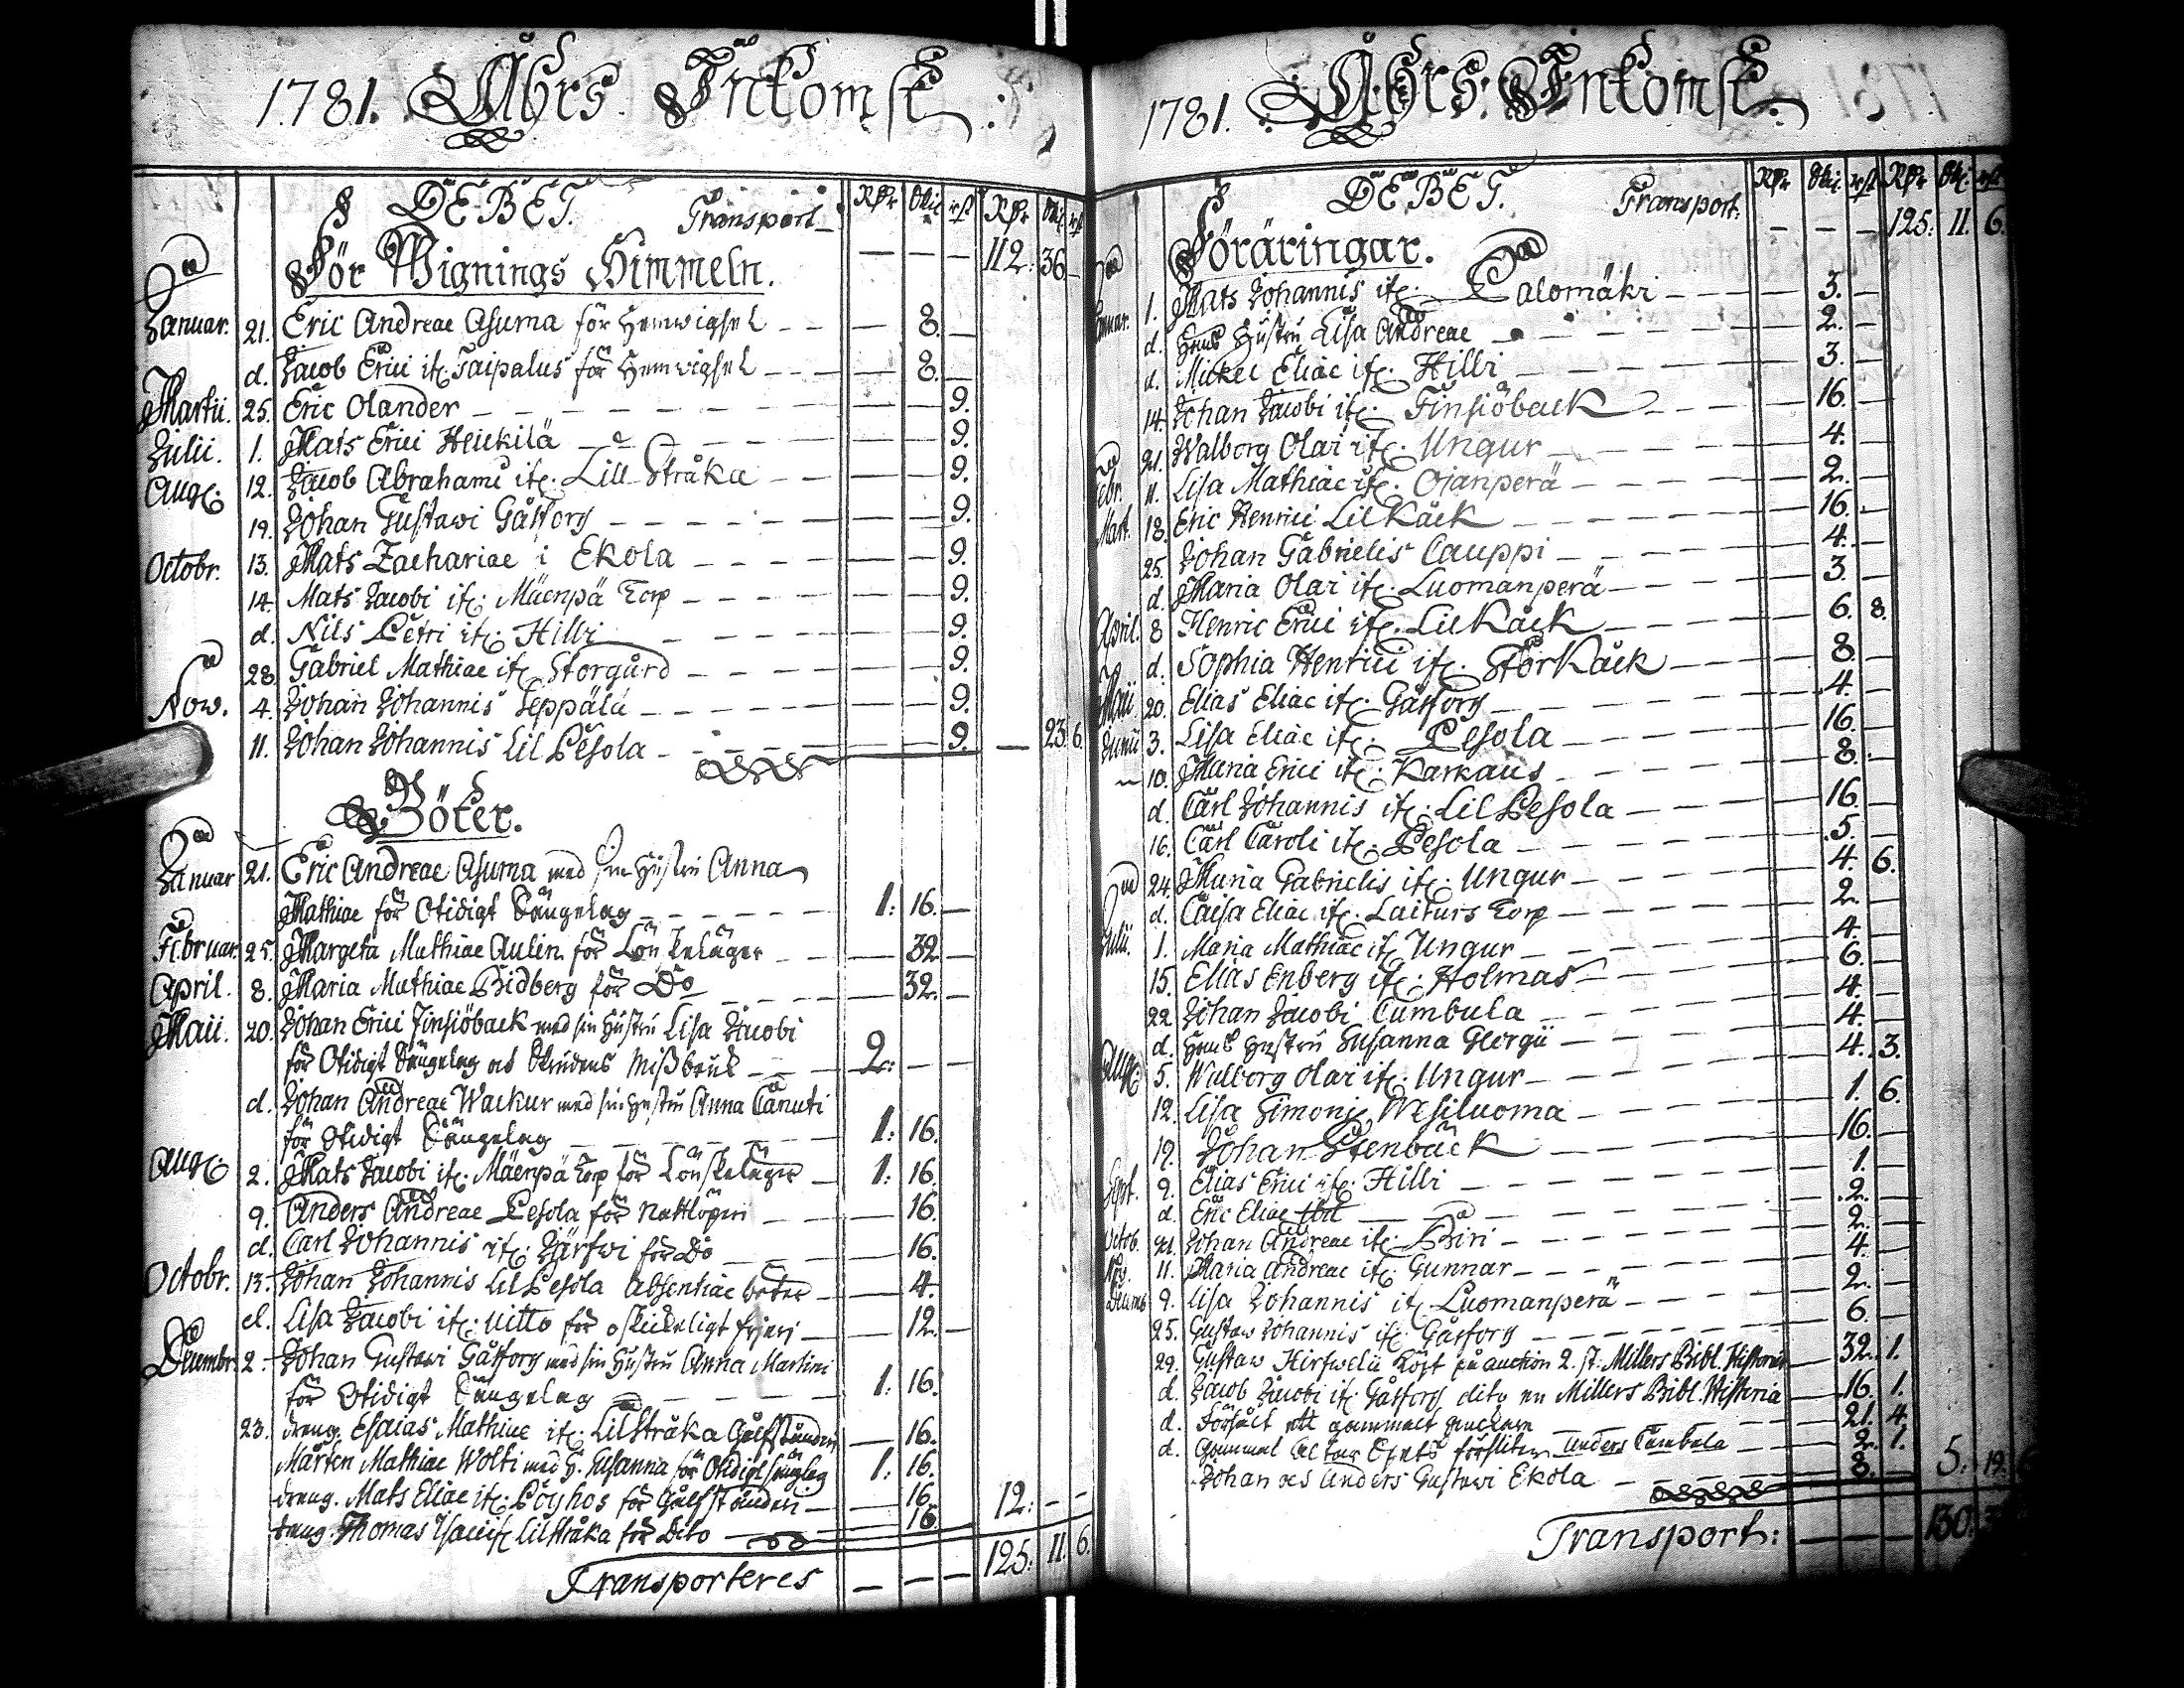 1781. Åhrs Inkomst.
DEBET. Transport RDr Skil. rst RDr Skil. rst
För Wignings Himmeln. — — — 112: 36 —
Januar. 21. Eric Andreae Asuma för Hemwigsel — 8. —
d. Jacob Erici ifr. Taipalus för Hemwigsel — 8. —
Martii. 25. Eric Olander — — 9.
Julii. 1. Mats Erici Heickilä — — 9.
Aug. 12. Jacob Abrahami ifr. Lill Stråka — — 9.
19. Johan Gustawi Gåsforss — — 9.
Octobr. 13. Mats Zachariae i Ekola — — 9.
14. Mats Jacobi ifr. Mäenpä Torp — — 9.
d. Nils Petri ifr. Hilli — — 9.
28. Gabriel Mathiae ifr. Storgård — — 9.
Now. 4. Johan Johannis Seppälä — — 9.
11. Johan Johannis Lil Pesola — — 9. — 23. 6.
Böter.
Januar 21. Eric Andreae Asuma med sin Hustru Anna
Mathiae för Otidigt Sängelag — 1: 16. —
Februar. 25. Margeta Mathiae Aulin för Lönskeläger — 32 —
April. 8. Maria Mathiae Bidberg för Do — 32. —
Maii. 20. Johan Erici Finsiöback med sin Hustru Lisa Jacobi
för Otidigt Sängelag och Skrudens Missbruk — 2: — —
d. Johan Andreae Wackur med sin Hustru Anna Canuti
för Otidigt Sängelag — 1: 16.
Aug. 2. Mats Jacobi ifr. Mäenpä Torp för Lönskeläger — 1: 16.
9. Anders Andreae Pesola för Nattlöperi — 16.
d. Carl Johannis ifr. Järfwi för Do — 16.
Octobr. 13. Johan Johannis Lil Pesola Absentiae böter — 4.
d. Lisa Jacobi ifr. Uitto för oskickeligt frieri — 12. —
Decembr. 2. Johan Gustawi Gåsforss med sin Hustru Anna Martini
för Otidigt Sängelag — 1: 16.
23. dreng. Esaias Mathiae ifr. Lilstråka — 16.
Mårten Mathiae Wolti med H. Susanna för Otidigt sänglag 1: 16.
dreng. Mats Eliae ifr. Pöyhös för — 16.
dreng. Thomas ifr. Lilstråka för Dito — 16. 12: — —
Transporteres — — — 125: 11. 6.
1781. Åhrs Inkomst.
DEBET. Transport: RDr Skil. rst RDr Skil. rst
Föräringar. — — — 125: 11. 6.
Januar. 1. Mats Johannis ifr. Palomäki — 3. —
d. Hans Hustru Lisa Andreae — 2. —
d. Mickel Eliae ifr. Hilli — 3. —
14. Johan Jacobi ifr. Finsiöback — 16. —
21. Walborg Olai ifr. Ungur — 4. —
Febr. 11. Lisa Mathiae ifr. Ojanperä — 2. —
Mart. 18. Eric Henrici Lil Kåck — 16. —
25. Johan Gabrielis Cauppi — 4. —
d. Maria Olai ifr. Luomanperä — 3. —
April. 8 Henric Erici ifr. Lil Kåck — 6. 8.
d. Sophia Henrici ifr. Stor Kåck — 8. —
Maii 20. Elias Eliae ifr. Gåsforss — 4. —
Junii 3. Lisa Eliae ifr. Pesola — 16. —
10. Maria Erici ifr. Karkaus — 8. —
d. Carl Johannis ifr. Lil Pesola — 16. —
16. Carl Caroli ifr. Pesola — 5. —
24. Maria Gabrielis ifr. Ungur — 4. 6.
d. Caisa Eliae ifr. Laiturs Torp — 2. —
Julii. 1. Maria Mathiae ifr. Ungur — 4. —
15. Elias Enberg ifr. Holmas — 6. —
22. Johan Jacobi Cumbula — 4. —
d. Hans Hustru Susanna Georgii — 4. —
Aug. 5. Walborg Olai ifr. Ungur — 4. 3.
12. Lisa Simonis Wesiluoma — 1. 6.
19. Johan Stenbäck — 16. —
Sept. 9. Elias Erici ifr. Hilli — 1. —
d. Eric Eliae ibid — 2. —
Octob. 21. Johan Andreae ifr. Biri — 2. —
Nov. 11. Maria Andreae ifr. Gunnar — 4. —
Decemb. 9. Lisa Johannis ifr. Luomanperä — 2. —
25. Gustaw Johannis ifr. Gåsforss — 6. —
29. Gustaw Hirfwelä köpt på auction 2. st. Millers Bibl. Historia — 32. 1.
d. Jacob Jacobi ifr. Gåsforss dito en Millers Bibl. Historia — 16. 1.
d. Försålt ett gammalt — 21. 4.
d. Gammal Altar försliten Anders Cumbula — 2. 1.
Johan och Anders Gustawi Ekola — 8. — 5: 19.
Transport: — — — 130.